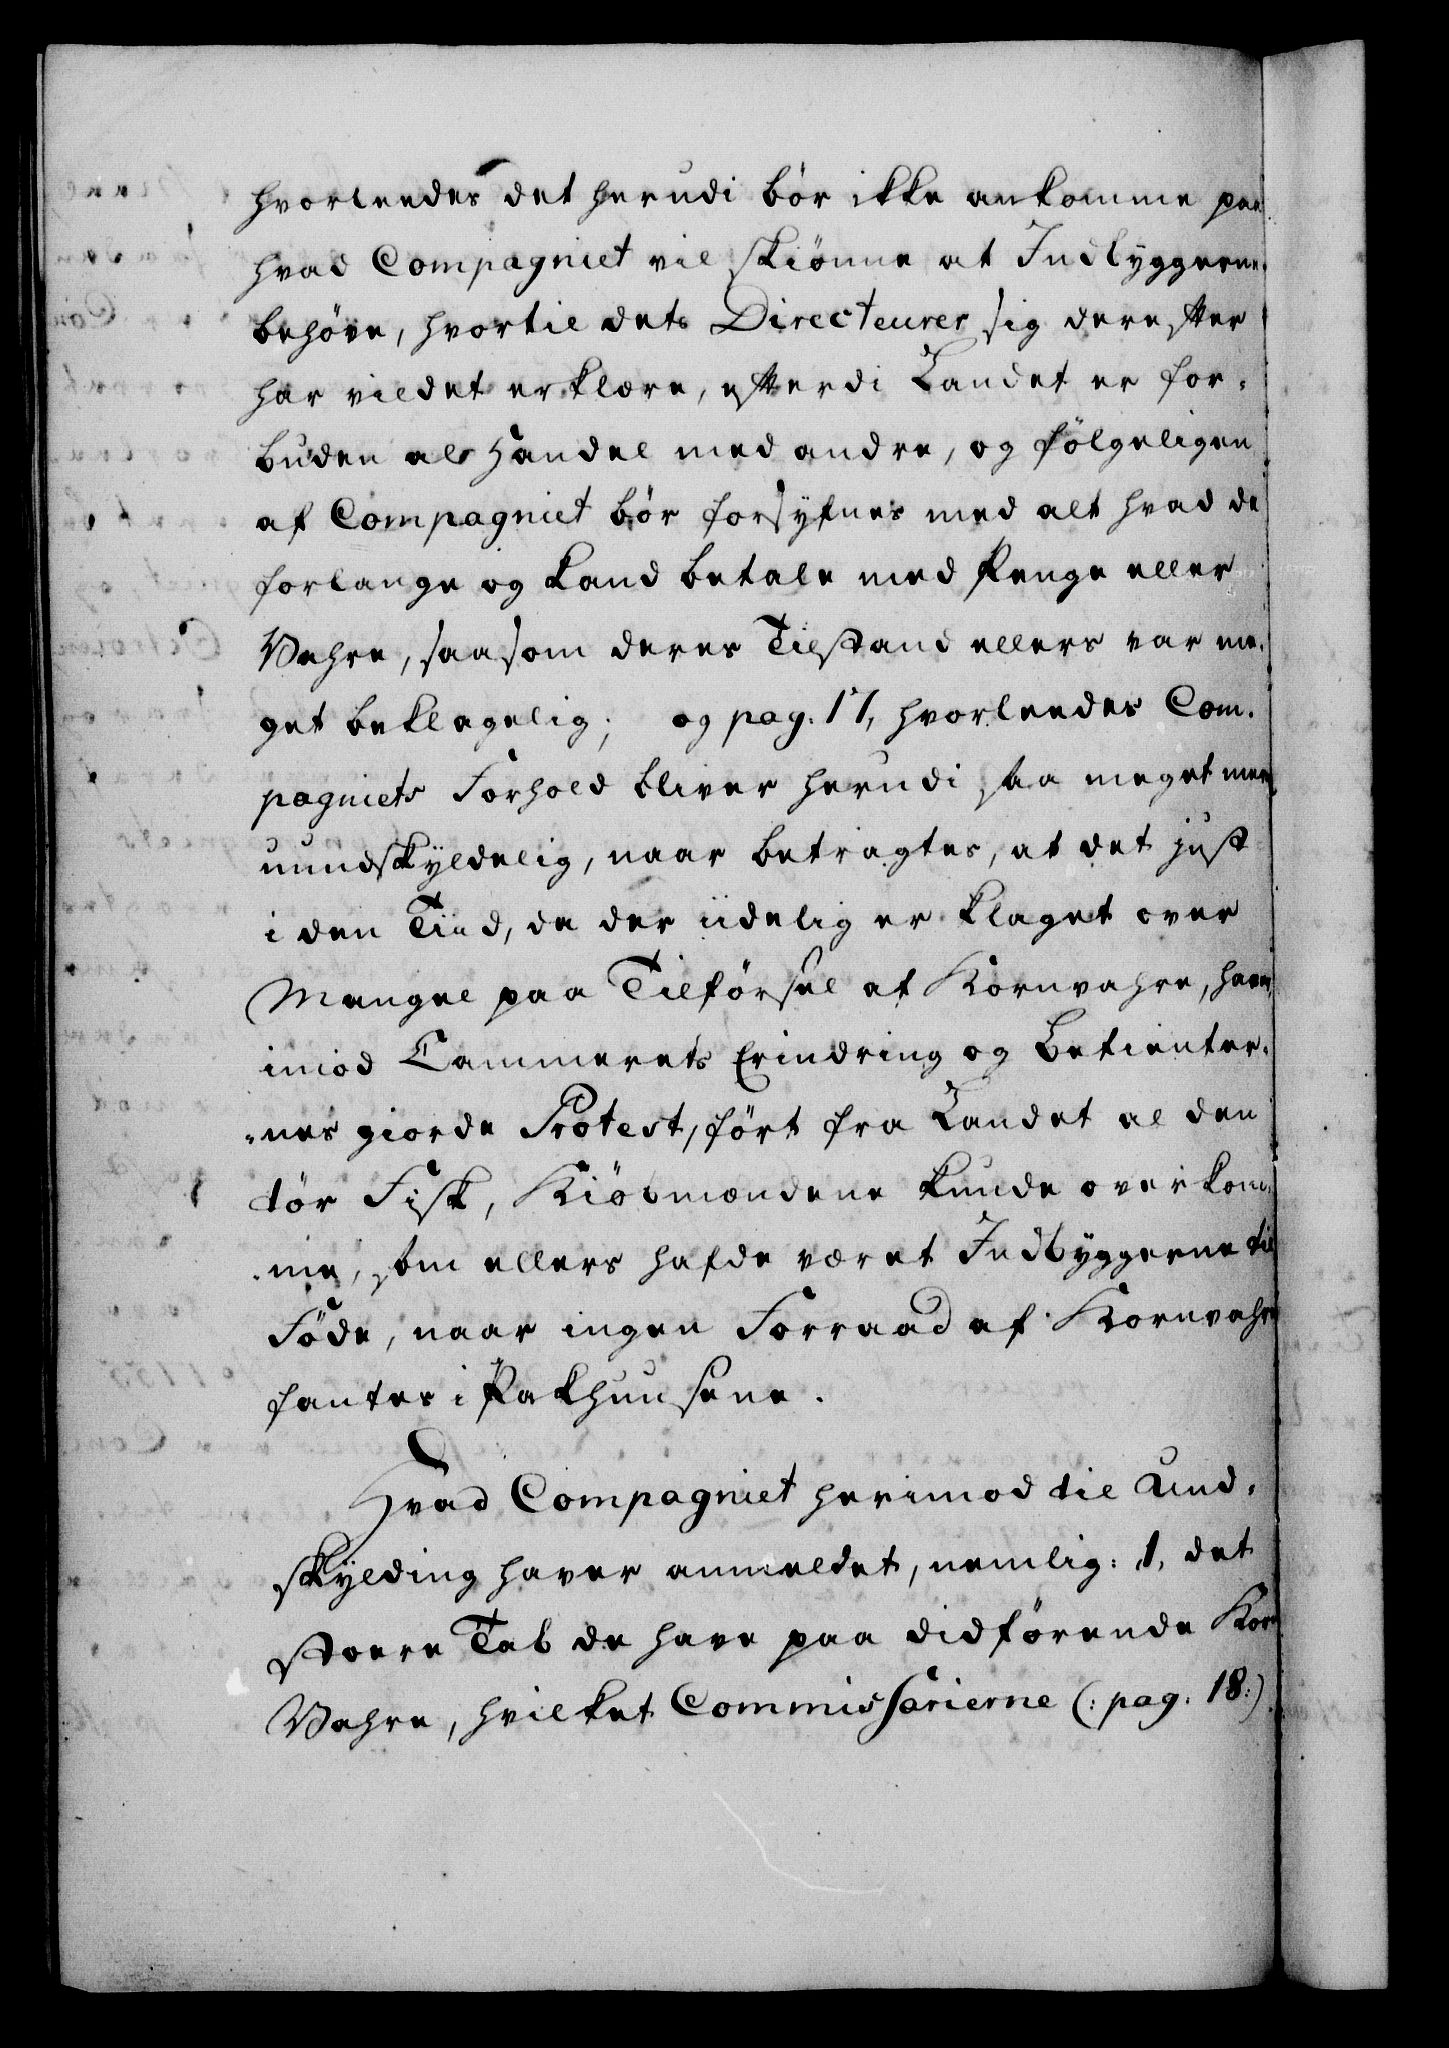 hvorledes det herudi bør ikke ankomme paa
hvad Compagniet vil skiønne at Indbyggerne
behøve, hvortil dets Directeurer sig derefter
har vildet erklære, efterdi Landet er for-
buden al Handel med andre, og følgeligen
af Compagniet bør forsyfnes med alt hvad de
forlange og kand betale med Penge eller
Vahre, saasom deres Tilstand ellers var me-
get beklagelig; og pag. 17, hvorledes Com-
pagniets Forhold bliver herudi saa meget meer
uundskyldelig, naar betragtes, at det just
i den Tiid, da der iidelig er klaget over
Mangel paa Tilførsel af Kornvahre, haver,
imod Cammerets Erindring og Betienter-
nes giorde Protest, ført fra Landet al den
tør Fisk, Kiøbmændene kunde overkom-
me, som ellers hafde været Indbyggerne til
Føde, naar ingen Forraad af Kornvahre
fantes i Pakhuusene.
Hvad Compagniet herimod til Und-
skylding haver anmeldet, nemlig: 1, det
stoere Tab de have paa didførende Korn
Vahre, hvilket Commissarierne (: pag. 18:)